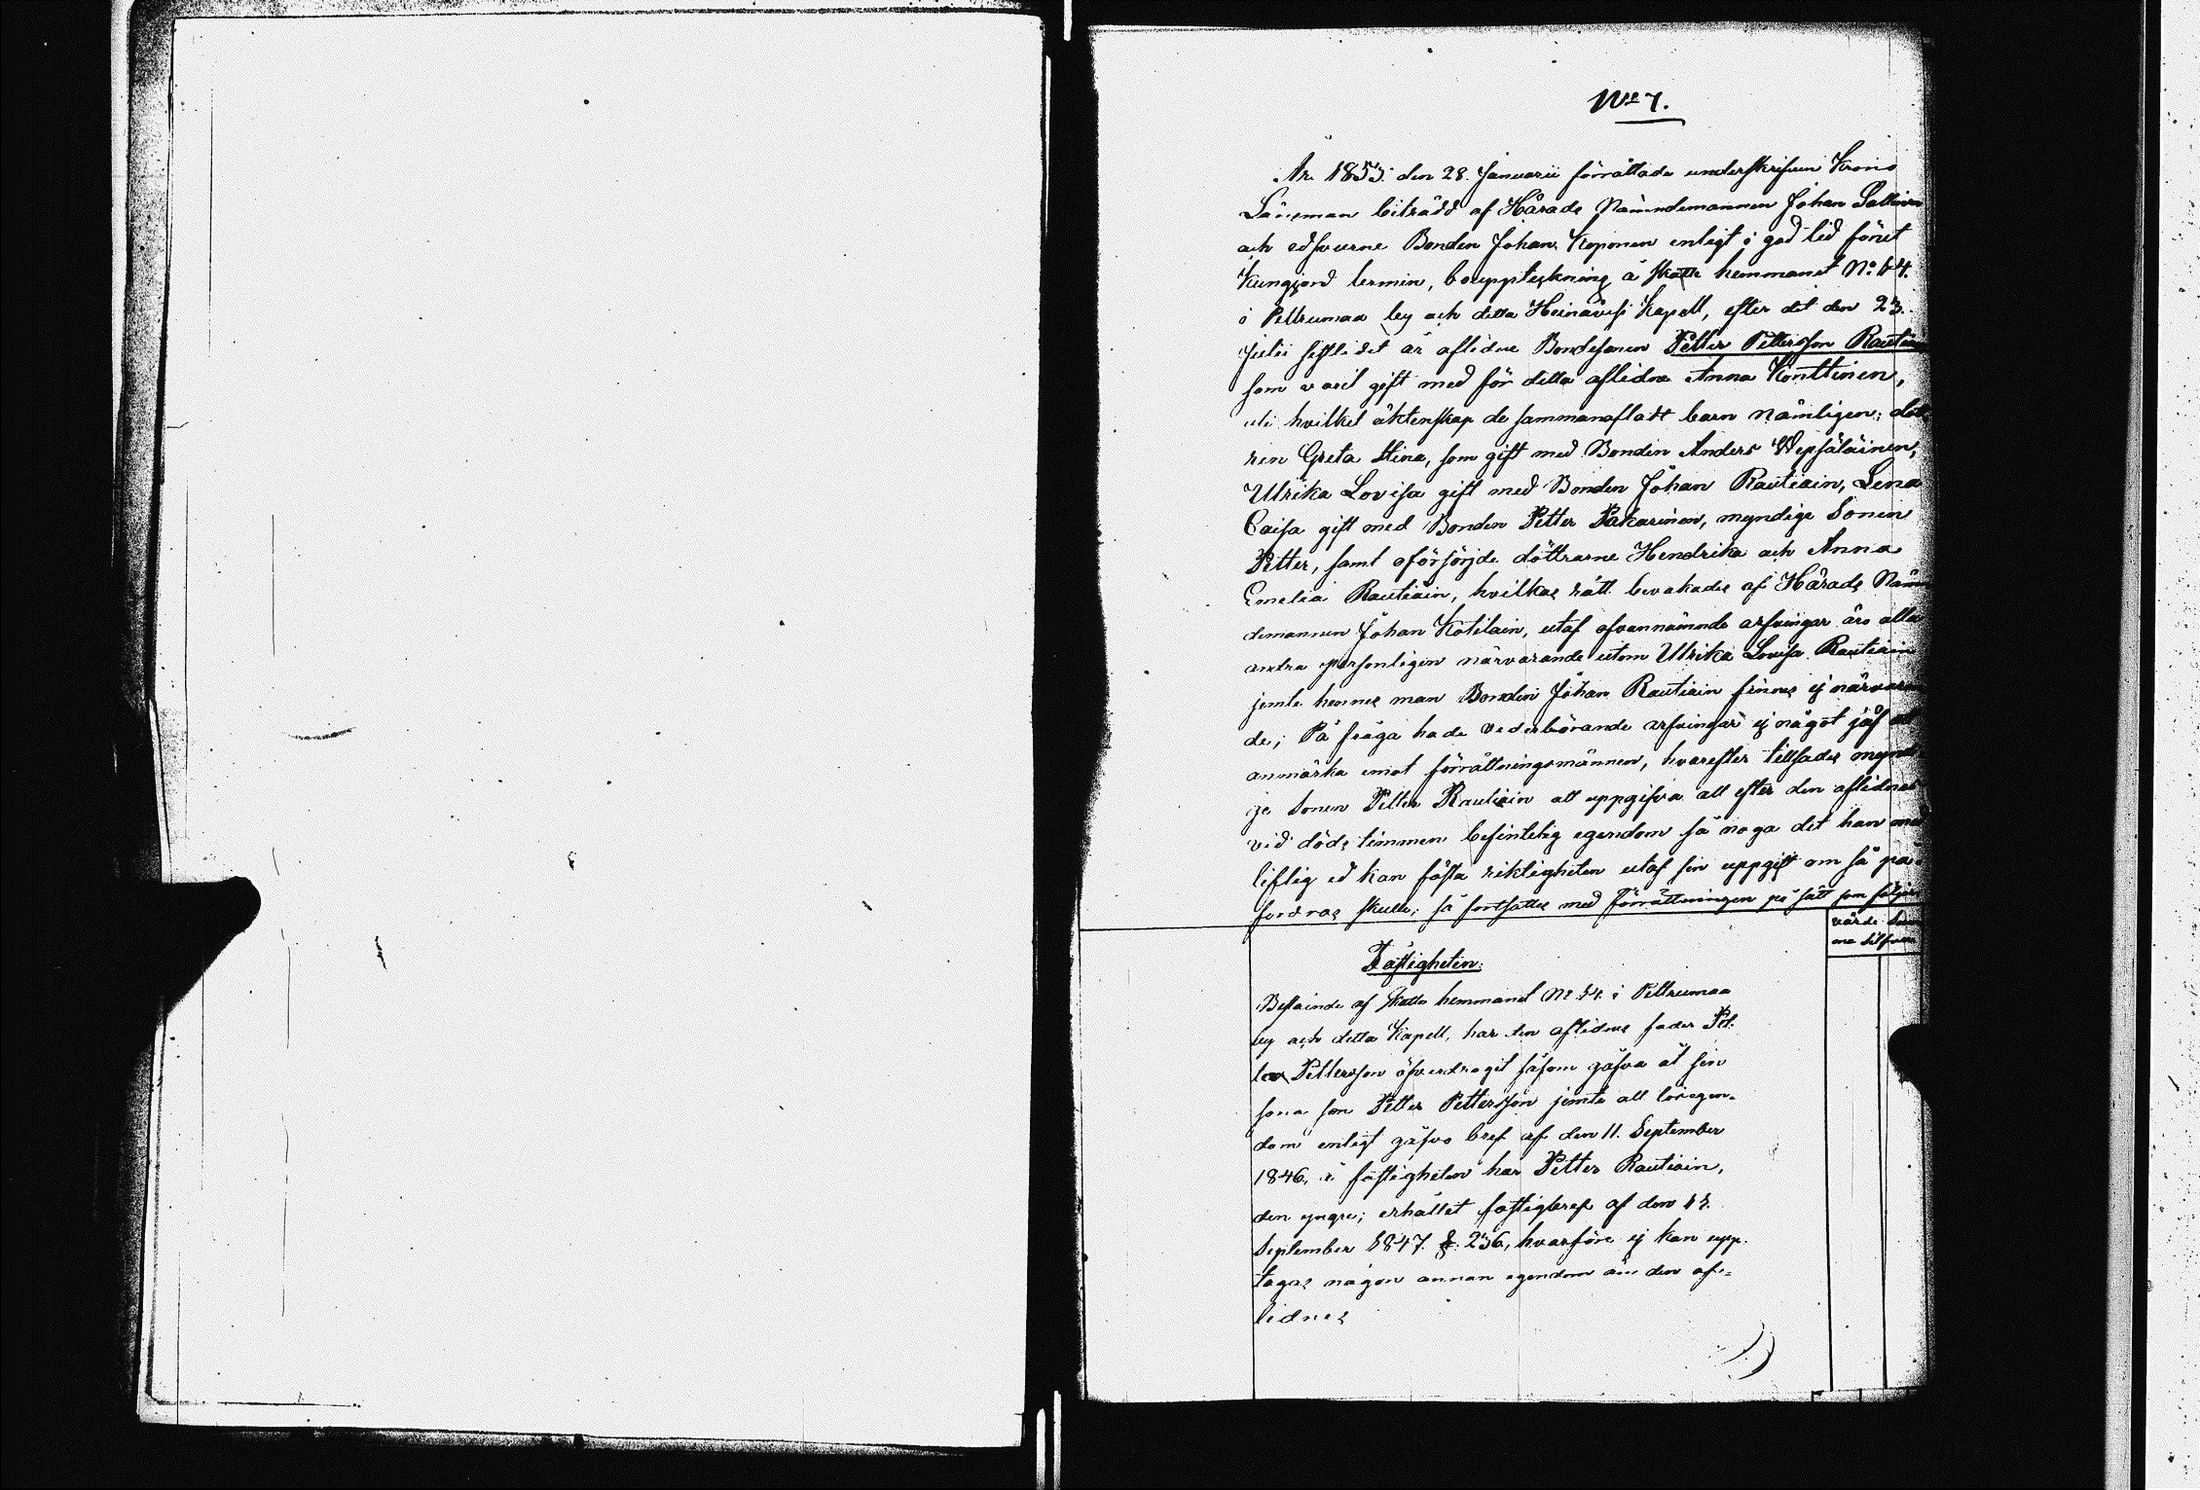 No 7.
År 1853 den 28. Januarii förrättade underskrifven Krono
Länsman biträdd af Härads Nämndemannen Johan
och edsvurne Bonden Johan Koponen enligt i god tid förut
Kungjord termin, bouppteckning å skatte hemmanet No 14.
i Petrumaa by och detta Heinävesi Kapell, efter det den 23.
Julii sistlidet år aflidne Bondesonen Petter Pettersson Rautiain
som varit gift med för detta aflidne Anna Konttinen,
uti hvilket äktenskap de sammanaflatt barn Nämligen; dött
ren Greta Stina, som gift med Bonden Anders Wepsäläinen,
Ulrika Lovisa gift med Bonden Johan Rautiain, Lena
Caisa gift med Bonden Petter Pakarinen, myndige Sonen
Petter, samt oförsörjde döttrarne Hendrika och Anna
Emelia Rautiain, hvilkas rätt bevakades af Härads Näm
demannen Johan Kotilain, utaf ofvannämnde arfvingar äro alla
andra personligen närvarande utom Ulrika Lovisa Rautiain
jemte hennes man Bonden Johan Rautiain finnes ej närvaran
de; På fråga hade vederbörande arfvingar ej något jäf att
anmärka emot förrättningsmännen, hvarefter tillsades myndi
ge Sonen Petter Rautiain att uppgifva all efter den aflidnes
vid döds timmen befintelig egendom så noga det han med
liflig ed kan fästa riktigheten utaf sin uppgift om så på
fordras skulle; så fortsattes med förrättningen på sätt som följer
värde Sum
ma Silfver
Fastigheten:
Bestående af skatte hemmanet No 14. i Petrumaa
by och detta Kapell, har den aflidnes fader Pet-
ter Pettersson öfverdragit såsom gåfva åt sin
sons son Petter Pettersson jemte all lösegen-
dom enligt gåfvo bref af den 11. September
1846, å fastigheten har Petter Rautiain,
den yngre; erhållet fastigbref af den 13.
September 1847. §. 236, hvarföre ej kan upp-
tagas någon annan egendom än den af-
lidnes